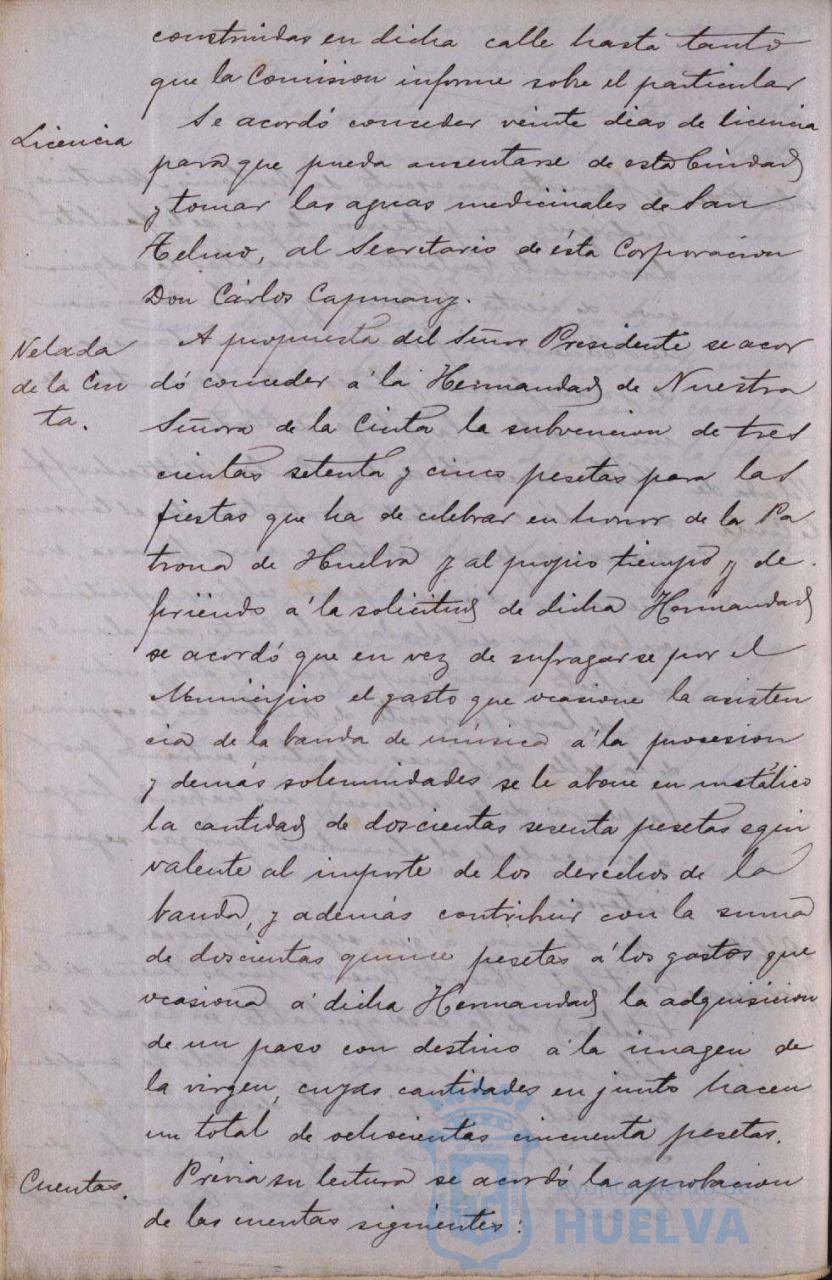 construidas en dicha calle hasta tanto
que la Comision informe sobre el particular
Licencia
Se acordó conceder veinte dias de licencia
para que pueda ausentarse de esta Ciudad
y tomar las aguas medicinales de San
Telmo, al Secretario de ésta Corporacion
Don Cárlos Capmany.
Velada
de la Cin
ta.
A propuesta del Señor Presidente se acor
dó conceder á la Hermandad de Nuestra
Señora de la Cinta la subvencion de tres
cientas setenta y cinco pesetas para las
fiestas que ha de celebrar en honor de la Pa
trona de Huelva y al propio tiempo, y de
firiendo á la solicitud de dicha Hermandad
se acordó que en vez de sufragarse por el
Municipio el gasto que ocasione la asisten
cia de la banda de música á la prosesion
y demás solemnidades se le abone en metálico
la cantidad de doscientas sesenta pesetas equi
valente al importe de los derechos de la
banda, y además contribuir con la suma
de doscientas quince pesetas á los gastos que
ocasiona á dicha Hermandad la adquisicion
de un paso con destino á la imagen de
la virgen, cuyas cantidades en junto hacen
un total de ochocientas cincuenta pesetas.
Cuentas.
Prévia su lectura se acordó la aprobacion
de las cuentas siguientes:
Ayuntamiento de
HUELVA